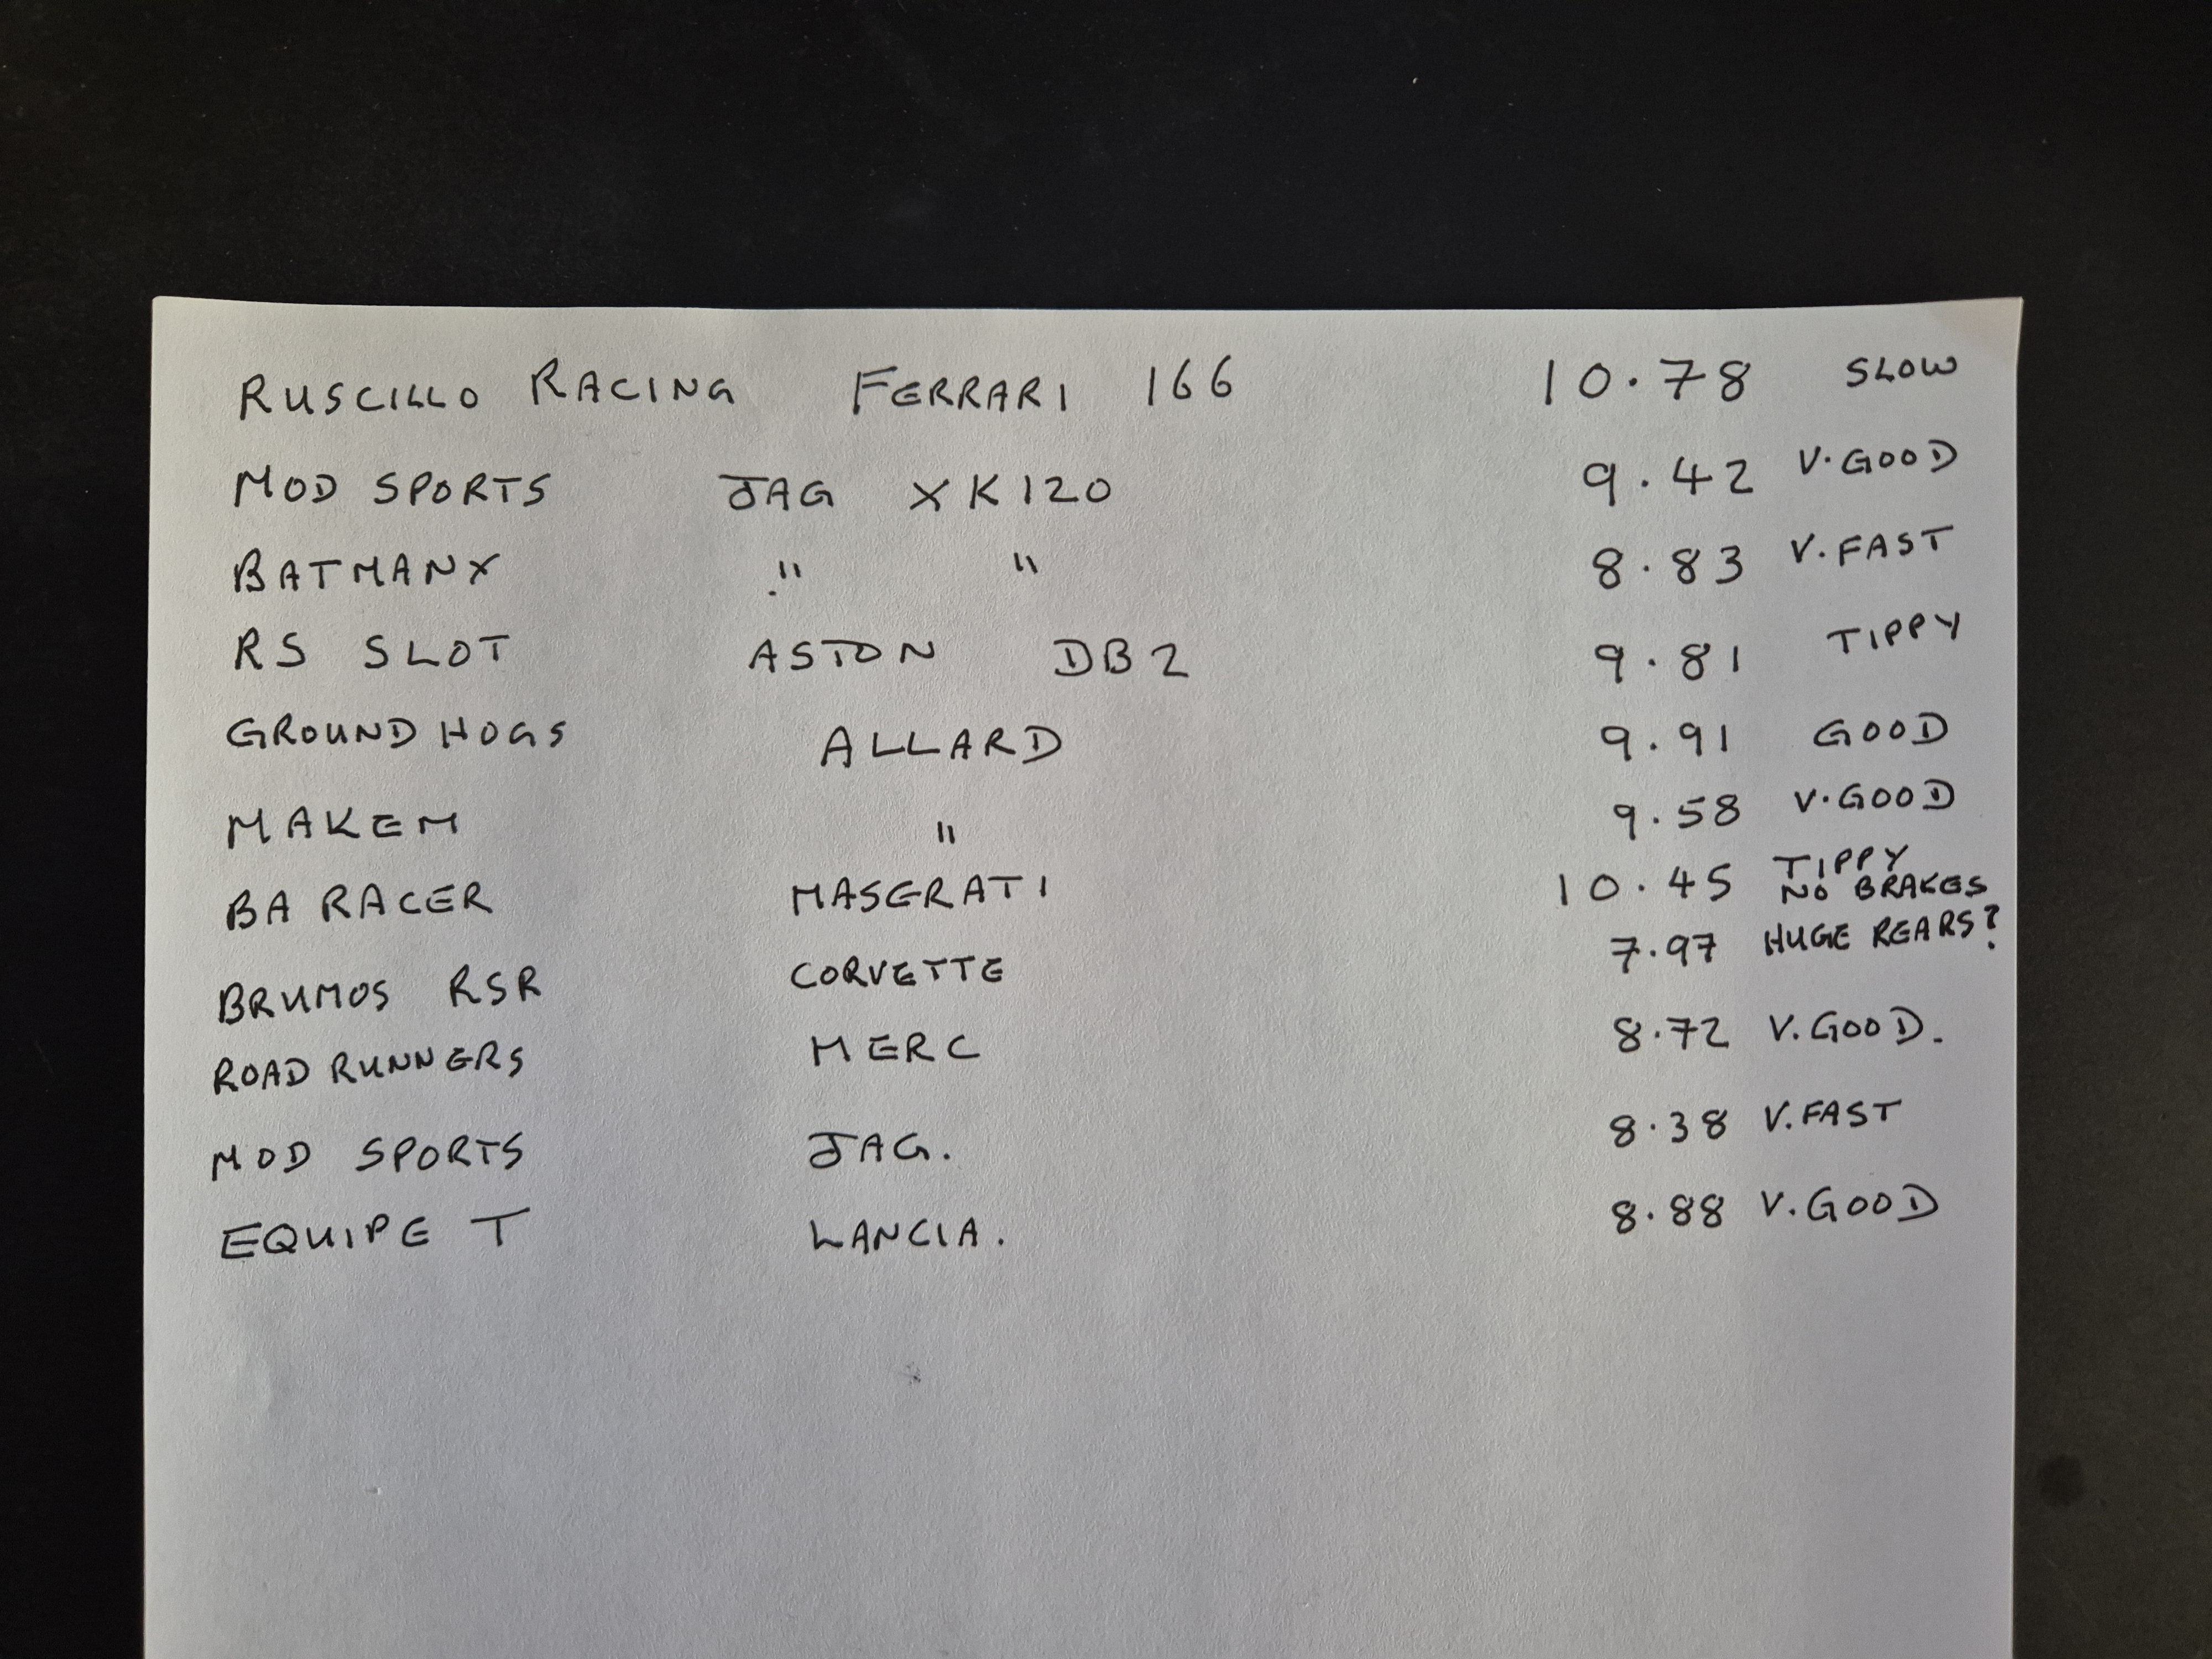 RUSCILLO RACING FERRARI 166 10.78 SLOW
MOD SPORTS JAG XK120 9.42 V.GOOD
BATMANX " " 8.83 V.FAST
RS SLOT ASTON DB2 9.81 TIPPY
GROUND HOGS ALLARD 9.91 GOOD
MAKEM " 9.58 V.GOOD
BA RACER MASERATI 10.45 TIPPY
NO BRAKES
BRUMOS RSR CORVETTE 7.97 HUGE REARS?
ROAD RUNNERS MERC 8.72 V.GOOD.
MOD SPORTS JAG. 8.38 V.FAST
EQUIPE T LANCIA. 8.88 V.GOOD